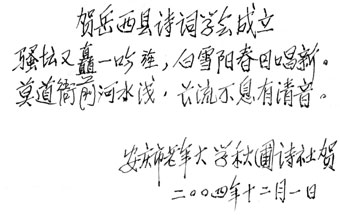 贺岳西县诗词学会成立
骚坛又矗一吟旌，白雪阳春日唱新。
莫道衙前河水浅，长流不息有清音。
安庆市老年大学秋圃诗社贺
二〇〇四年十二月一日